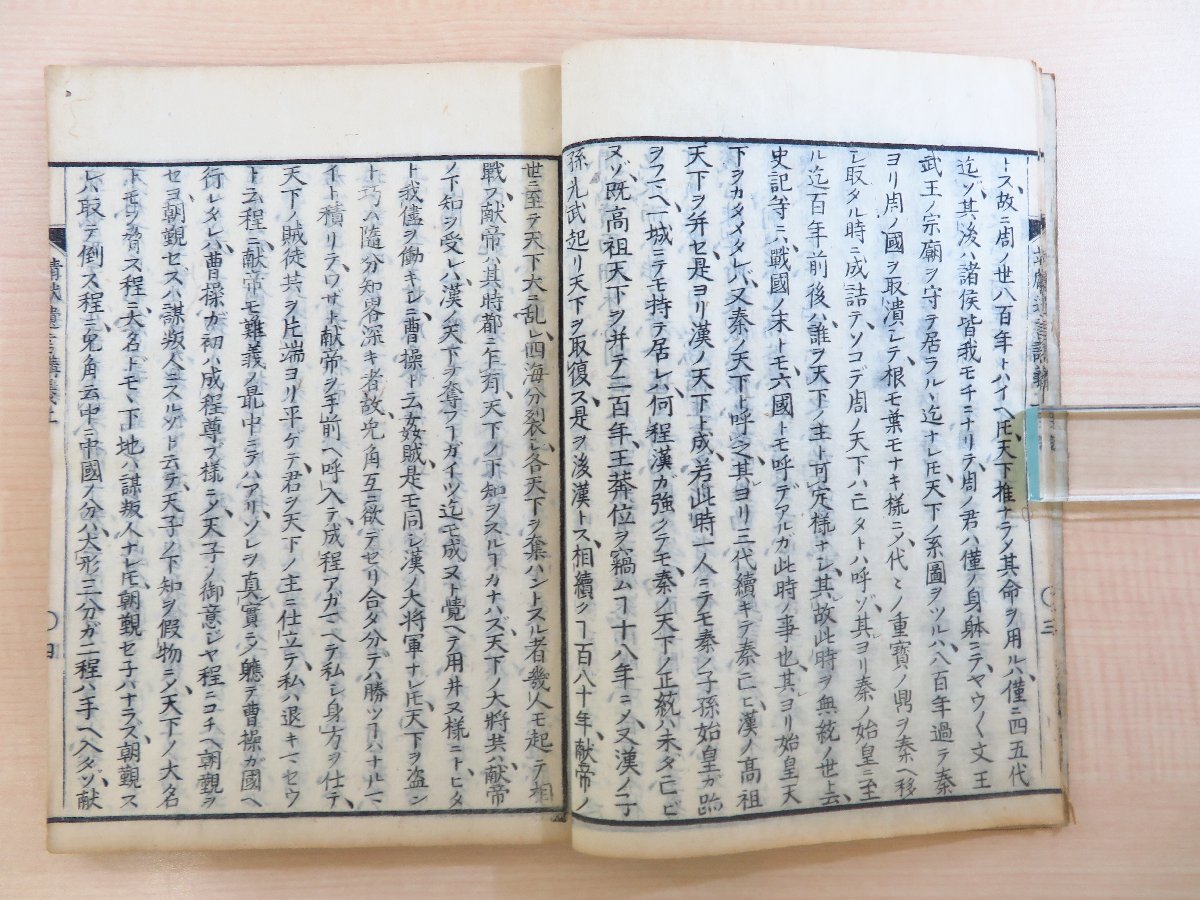 トス、故ニ周ノ世八百年トハイヘ𪜈、天下推ナラメ其命ヲ用ル、僅ニ四五代
迄ゾ、其後ハ諸侯皆我モチニナリテ、周ノ君ハ僅ノ身躰ニテヤウ〱文王
武王ノ宗廟ヲ守テ居ラル、迄ナレ𪜈、天下ノ系圖ヲツル、八百年過テ秦
ヨリ周ノ國ヲ取潰シテ、根モ葉モナキ様ニメ、代々ノ重寶ノ鼎ヲ秦ヘ移
シ取タル時ニ成詰テ、ソコデ周ノ天下ハ亡タトハ呼ゾ、其ヨリ秦ノ始皇ニ至
ル迄百年前後ハ、誰ヲ天下ノ主ト可定様ナシ、其故此時ヲ無統ノ世ト云、
史記等ニハ戰國ノ末トモ六國トモ呼デアルガ此時ノ事也、其ヨリ始皇天
下ヲカタメタレバ、又秦ノ天下ト呼之、其ヨリ二代續キテ秦亡ヒ、漢ノ高祖
天下ヲ并セ、是ヨリ漢ノ天下ト成、若此時一人ニテモ秦ノ子孫始皇ガ跡
ヲフマヘ、一城ニテモ持テ居レバ、何程漢ガ強クテモ、秦ノ天下ノ正統ハ未タ亡ビ
ヌゾ、既高祖天下ヲ并テ二百年、王莽位ヲ竊ムヿ十八年ニメ、又漢ノ子
孫光武起リ天下ヲ取復ス、是ヲ後漢トス、相續クヿ百八十年、献帝ノ
世ニ至テ天下大ニ乱レ、四海分裂シ、各天下ヲ奪ハントスル者幾人モ起テ相
戰フ、献帝ハ其時都ニ乍有、天下ノ下知ヲスルヿカナハズ、天下ノ大將共ハ、献帝
ノ下知ヲ受レバ、漢ノ天下ヲ奪フヿガイツ迄モ成ヌト覺ヘテ、用井ヌ様ニトヒタ
ト我儘ヲ働キシニ、曹操ト云姦賊、是モ同シ漢ノ大将軍ナレ𪜈、天下ヲ盗ン
ト巧ハ、隨分知畧深キ者故、兎角互ニ欲テセリ合タ分デハ勝ツヿハナルマ
イト積リテ、ワサト献帝ヲ王前ヘ呼入テ、成程アガマヘテ、私シ身方ヲ仕テ、
天下ノ賊徒共ヲ片端ヨリ平ケテ、君ヲ天下ノ主ニ仕立テ、私ハ退キマセウ
ト云程ニ、献帝モ難義ノ最中ニテハアリ、ソレヲ真實ラシク聴テ、曹操ガ國ヘ
行レタレバ、曹操ガ初ハ成程尊ブ様ニシ、天子ノ御意ジヤ程ニ、コチヘ朝覲ヲ
セヨ、朝覲セズハ謀叛人ニスルゾト云テ、天子ノ下知ヲ假物ニシ、天下ノ大名
トモヲ脅ス程ニ、大名トモヽ下地ハ謀叛人ナレ𪜈、朝覲セ子ハナラズ、朝覲ス
レハ取テ倒ス程ニ、兎角云中ニ中國ノ分ハ大形三分ガ二程ハ手ヘ入タゾ、献
靖献遺言講義
三
四